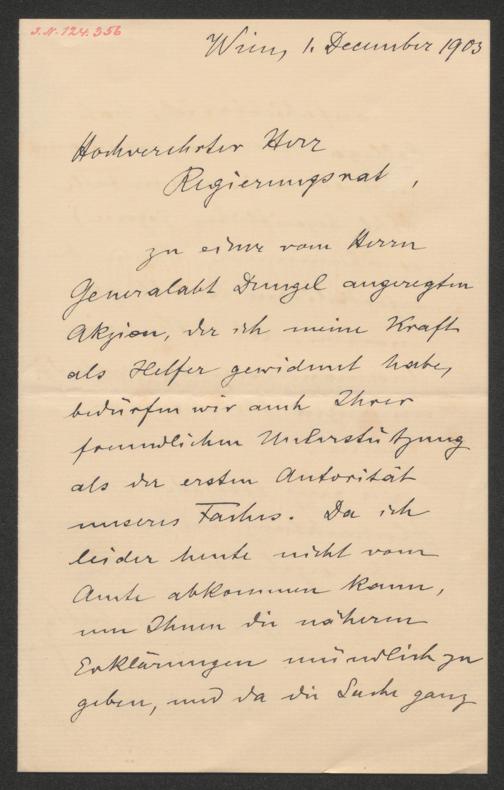 J.N. 124.356
Wien, 1. December 1903
Hochverehrter Herr
Regierungsrat,
zu einer vom Herrn
Generalabt Dungel angeregten
Akzion, der ich meine Kraft
als Helfer gewidmet habe,
bedürfen wir auch Ihrer
freundlichen Unterstützung
als der ersten Autorität
unseres Faches. Da ich
leider heute nicht vom
Amte abkommen kann,
um Ihnen die näheren
Erklärungen mündlich zu
geben, und da die Sache ganz